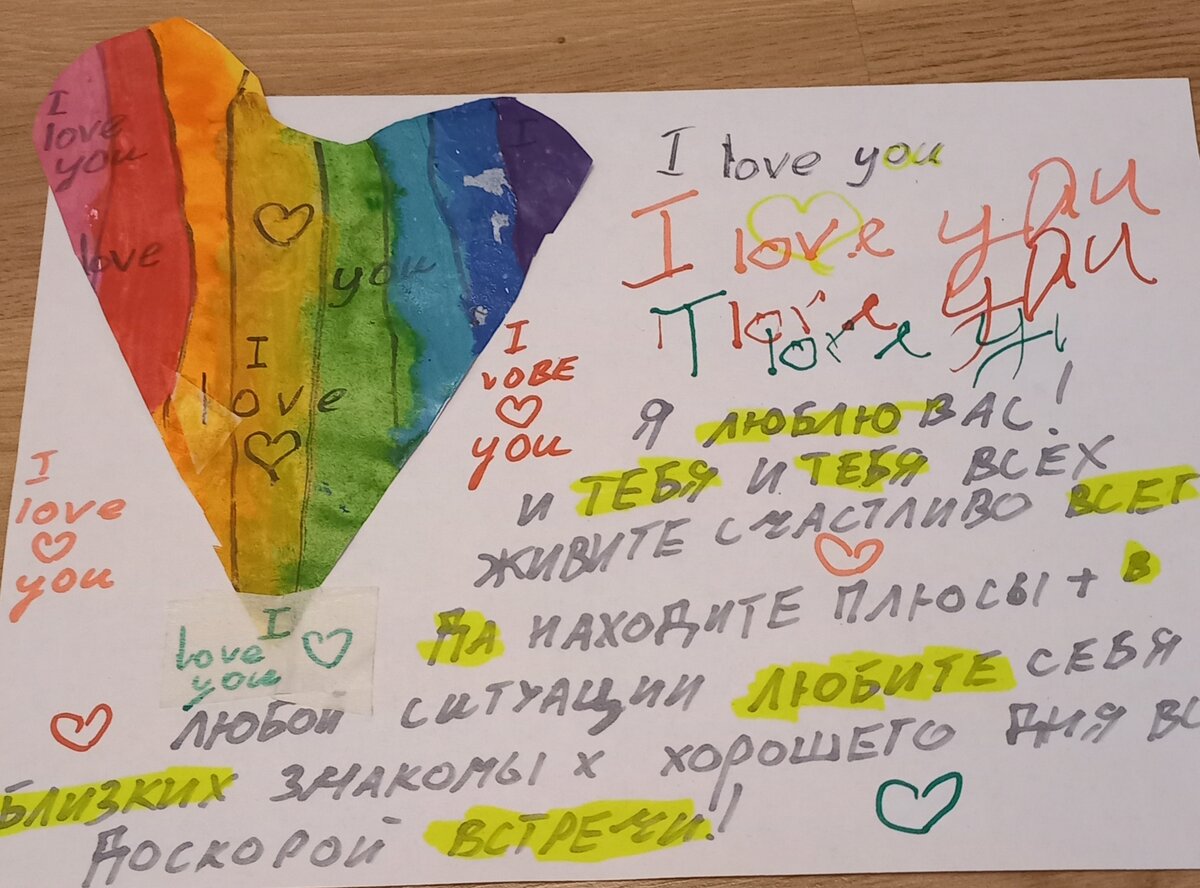 I
love
you
love
you
I
love
I
I love you
I love you
I love you
you
I love
Я ЛЮБЛЮ ВАС!
И ТЕБЯ И ТЕБЯ ВСЕХ
ЖИВИТЕ СЧАСТЛИВО ВСЕГ
ДА НАХОДИТЕ ПЛЮСЫ + В
ЛЮБОЙ СИТУАЦИИ ЛЮБИТЕ СЕБЯ
БЛИЗКИХ ЗНАКОМЫХ ХОРОШЕГО ДНЯ ВС
ДОСКОРОЙ ВСТРЕЧИ!!
I
LOBE
you
I
love
you
I
love
you